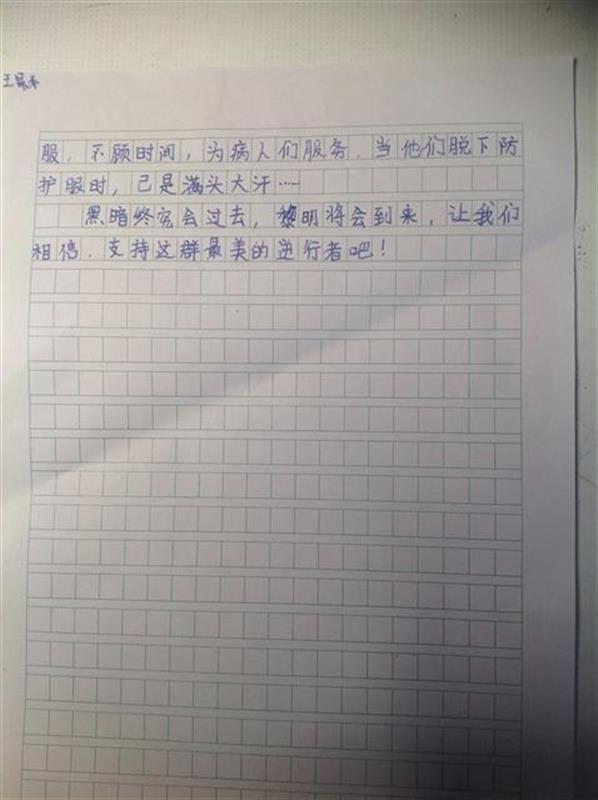 服，不顾时间，为病人们服务，当他们脱下防
护服时，已是满头大汗……
黑暗终究会过去，黎明将会到来，让我们
相信、支持这群最美的逆行者吧！